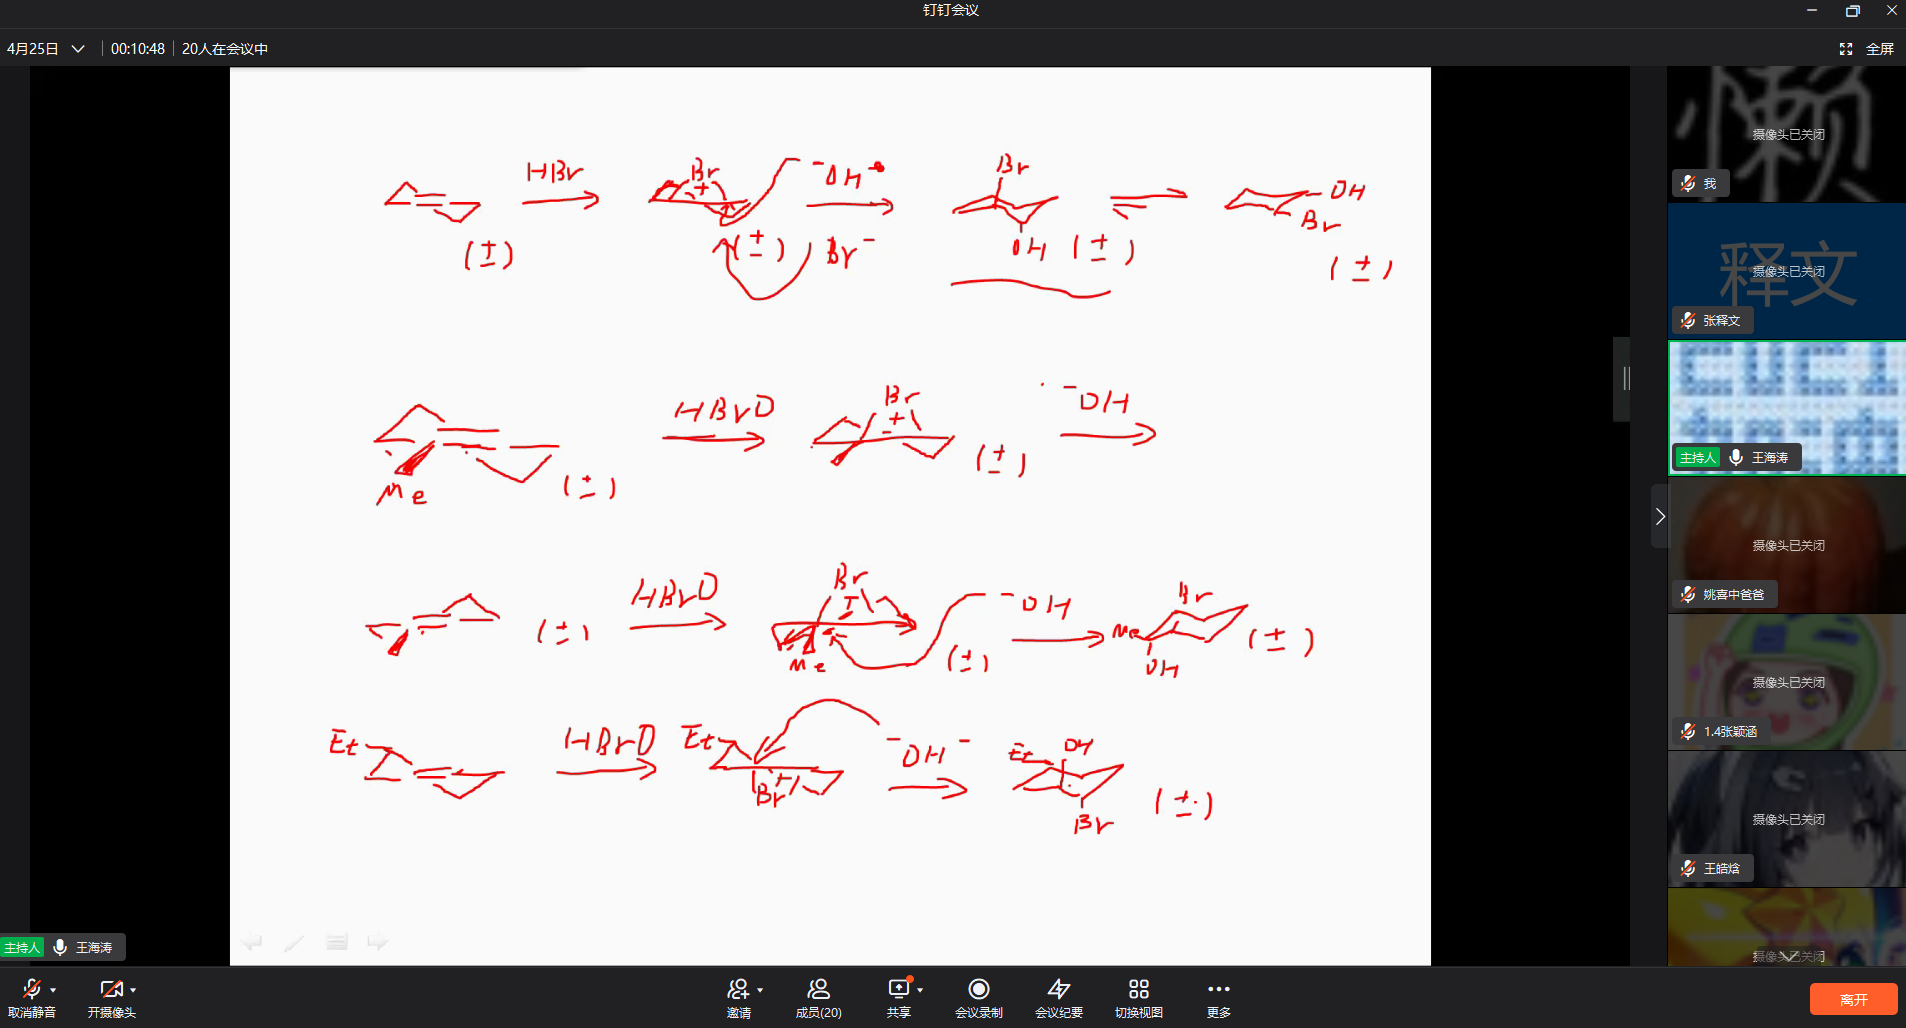 钉钉会议
4月25日 00:10:48 20人在会议中
全屏
HBr
Br
+
-OH
(±)
(±) Br-
Br
OH (±)
OH
Br
(±)
HBrO
Br
+
-OH
Me
(±)
(±)
HBrO
Br
+
-OH
(±)
Me
(±)
Br
Me
OH
(±)
Et
HBrO
Et
+
Br
-OH-
Et
OH
Br
(±)
懒
摄像头已关闭
我
释文
摄像头已关闭
张释文
主持人 王海涛
摄像头已关闭
姚喜中爸爸
摄像头已关闭
1.4张颖涵
摄像头已关闭
王皓焓
摄像头已关闭
主持人 王海涛
取消静音
开摄像头
邀请
成员(20)
共享
会议录制
会议纪要
切换视图
更多
离开